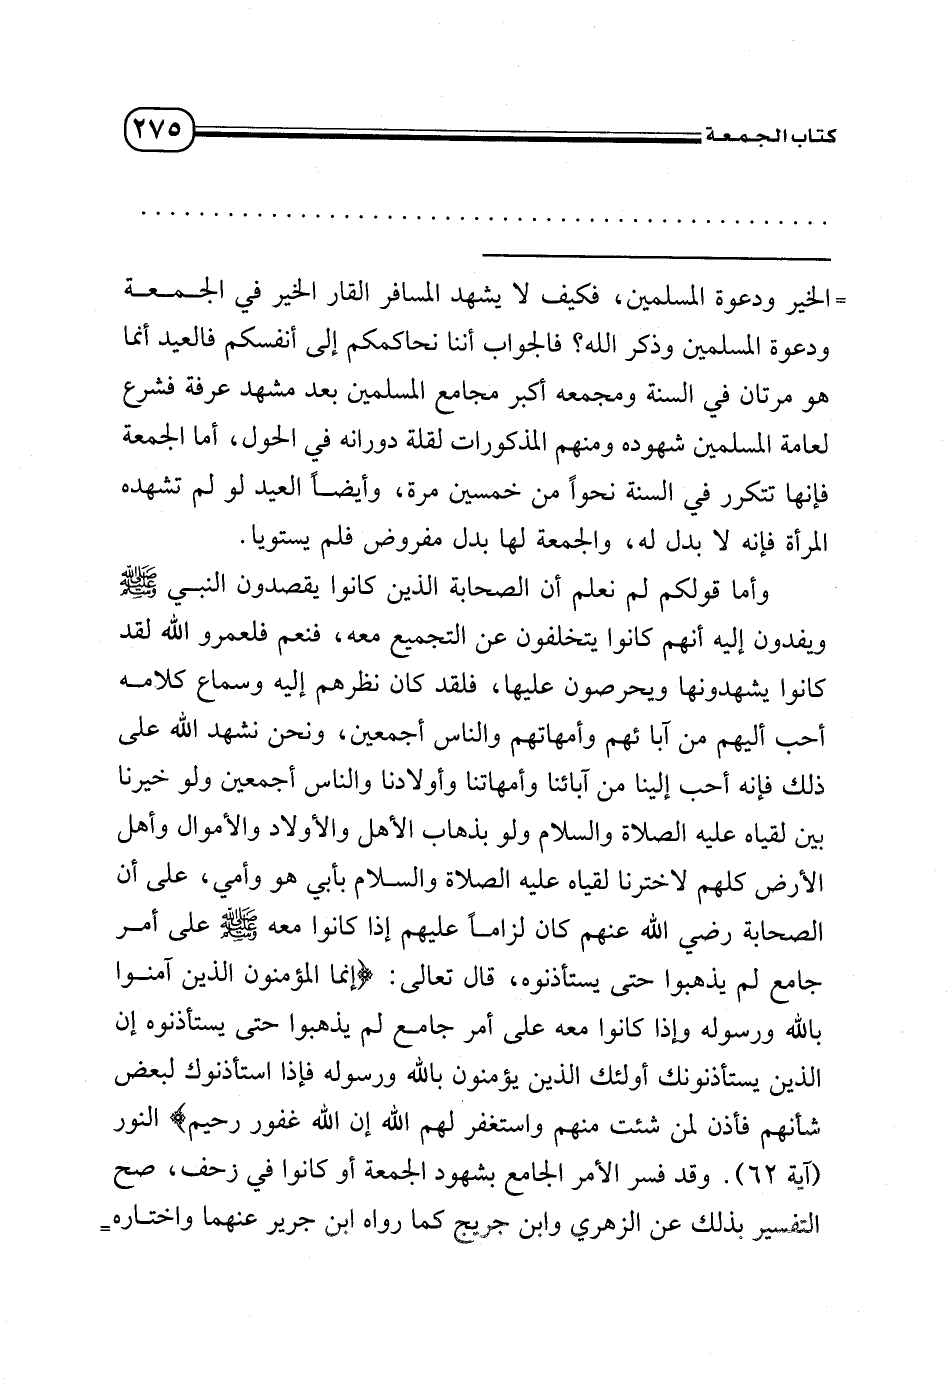 كتاب الجمعة ٢٧٥
. . . . . . . . . . . . . . . . . . . . . . . . . . . . . . . . . . . . . . . . . . . . . . . .
= الخير ودعوة المسلمين، فكيف لا يشهد المسافر القار الخير في الجمعة
ودعوة المسلمين وذكر الله؟ فالجواب أننا نحاكمكم إلى أنفسكم فالعيد أنما
هو مرتان في السنة ومجمعه أكبر مجامع المسلمين بعد مشهد عرفة فشرع
لعامة المسلمين شهوده ومنهم المذكورات لقلة دورانه في الحول، أما الجمعة
فإنها تتكرر في السنة نحواً من خمسين مرة، وأيضاً العيد لو لم تشهده
المرأة فإنه لا بدل له، والجمعة لها بدل مفروض فلم يستويا.
وأما قولكم لم نعلم أن الصحابة الذين كانوا يقصدون النبي ﷺ
ويفدون إليه أنهم كانوا يتخلفون عن التجميع معه، فنعم فلعمرو الله لقد
كانوا يشهدونها ويحرصون عليها، فلقد كان نظرهم إليه وسماع كلامه
أحب أليهم من آبا ئهم وأمهاتهم والناس أجمعين، ونحن نشهد الله على
ذلك فإنه أحب إلينا من آبائنا وأمهاتنا وأولادنا والناس أجمعين ولو خيرنا
بين لقياه عليه الصلاة والسلام ولو بذهاب الأهل والأولاد والأموال وأهل
الأرض كلهم لاخترنا لقياه عليه الصلاة والسلام بأبي هو وأمي، على أن
الصحابة رضي الله عنهم كان لزاماً عليهم إذا كانوا معه ﷺ على أمر
جامع لم يذهبوا حتى يستأذنوه، قال تعالى: ﴿إنما المؤمنون الذين آمنوا
بالله ورسوله وإذا كانوا معه على أمر جامع لم يذهبوا حتى يستأذنوه إن
الذين يستأذنونك أولئك الذين يؤمنون بالله ورسوله فإذا استأذنوك لبعض
شأنهم فأذن لمن شئت منهم واستغفر لهم الله إن الله غفور رحيم﴾ النور
(آية ٦٢). وقد فسر الأمر الجامع بشهود الجمعة أو كانوا في زحف، صح
التفسير بذلك عن الزهري وابن جريج كما رواه ابن جرير عنهما واختاره =